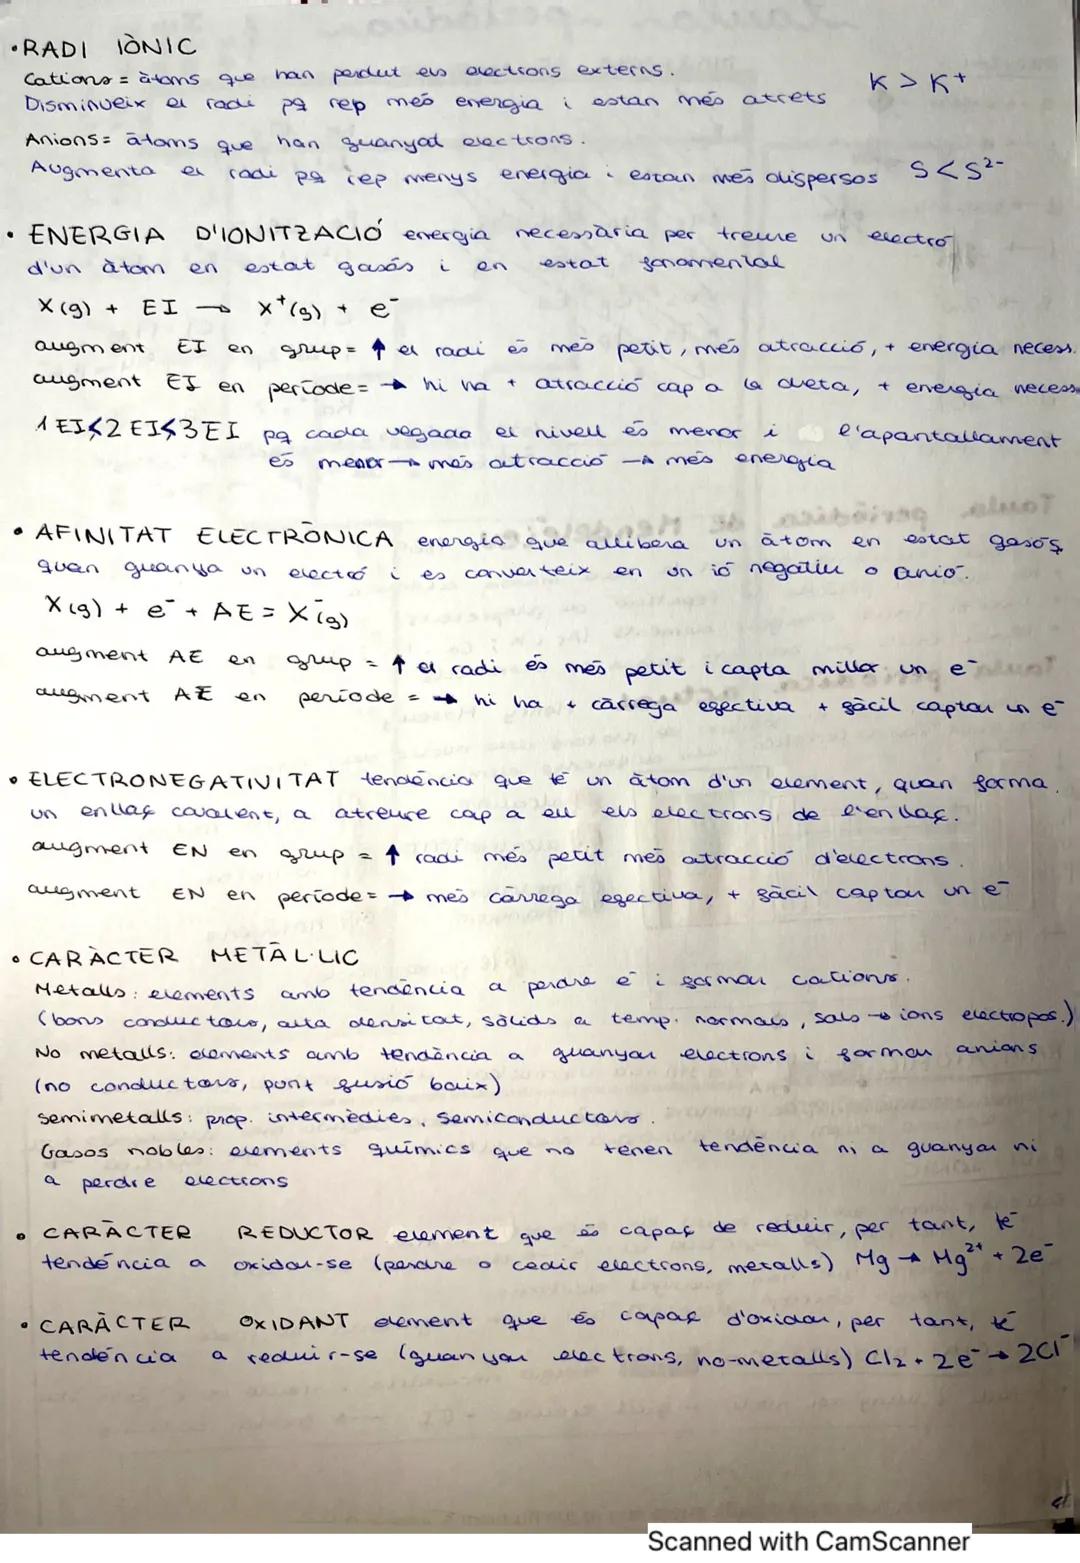 • RADI IÒNIC
Cations = àtoms que han perdut els electrons externs.
K > K⁺
Disminueix el radi pq rep més energia i estan més atrets
Anions = àtoms que han guanyat electrons.
Augmenta el radi pq rep menys energia i estan més dispersos S < S²⁻
• ENERGIA D'IONITZACIÓ energia necessària per treure un electró
d'un àtom en estat gasós i en estat fonamental
X(g) + EI → X⁺(g) + e⁻
augment EI en grup = ↑ el radi és més petit, més atracció, + energia necess.
augment EI en període = → hi ha + atracció cap a la dreta, + energia necess
1EI<2EI<3EI pq cada vegada el nivell és menor i l'apantallament
és menor → més atracció → més energia
• AFINITAT ELECTRÒNICA energia que allibera un àtom en estat gasós
quan guanya un electró i es converteix en un ió negatiu o anió.
X(g) + e⁻ + AE = X⁻(g)
augment AE en grup = ↑ el radi és més petit i capta millor un e⁻
augment AE en període = → hi ha + càrrega efectiva + fàcil captar un e⁻
• ELECTRONEGATIVITAT tendència que té un àtom d'un element, quan forma
un enllaç covalent, a atreure cap a ell els electrons de l'enllaç.
augment EN en grup = ↑ radi més petit més atracció d'electrons.
augment EN en període = → més càrrega efectiva, + fàcil captar un e⁻
• CARÀCTER METÀL·LIC
Metalls: elements amb tendència a perdre e⁻ i formar cations.
(bons conductors, alta densitat, sòlids a temp. normals, sals → ions electropos.)
No metalls: elements amb tendència a guanyar electrons i formar anions
(no conductors, punt fusió baix)
semimetalls: prop. intermèdies, semiconductors.
Gasos nobles: elements químics que no tenen tendència ni a guanyar ni
a perdre electrons
• CARÀCTER REDUCTOR element que és capaç de reduir, per tant, té
tendència a oxidar-se (perdre o cedir electrons, metalls) Mg → Mg²⁺ + 2e⁻
• CARÀCTER OXIDANT element que és capaç d'oxidar, per tant, té
tendència a reduir-se (guanyar electrons, no-metalls) Cl₂ + 2e⁻ → 2Cl⁻
Scanned with CamScanner